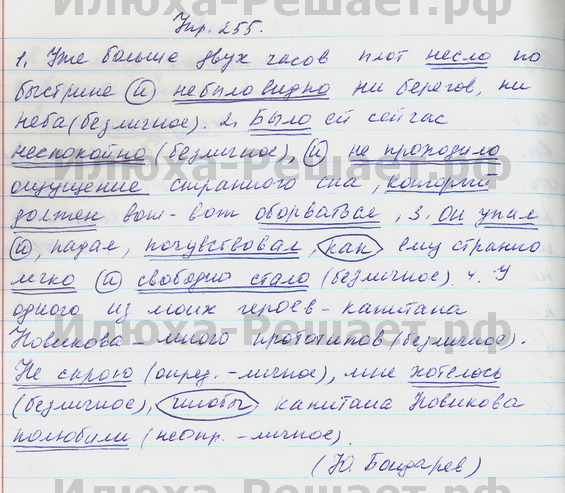 Илюха-Решает.рф
Упр. 255.
1. Уже больше двух часов плот несло по
быстрине и не было видно ни берегов, ни
неба (безличное). 2. Было ей сейчас
неспокойно (безличное), и не проходило
ощущение странного сна, который
должен вот-вот оборваться. 3. Он упал
и, падая, почувствовал, как ему странно
легко и свободно стало (безличное). 4. У
одного из моих героев - капитана
Новикова - много прототипов (безличное).
Не скрою (опред. - личное), мне хотелось
(безличное), чтобы капитана Новикова
полюбили (неопр. - личное).
(Ю. Бондарев)
Илюха-Решает.рф
Илюха-Решает.рф
Илюха-Решает.рф